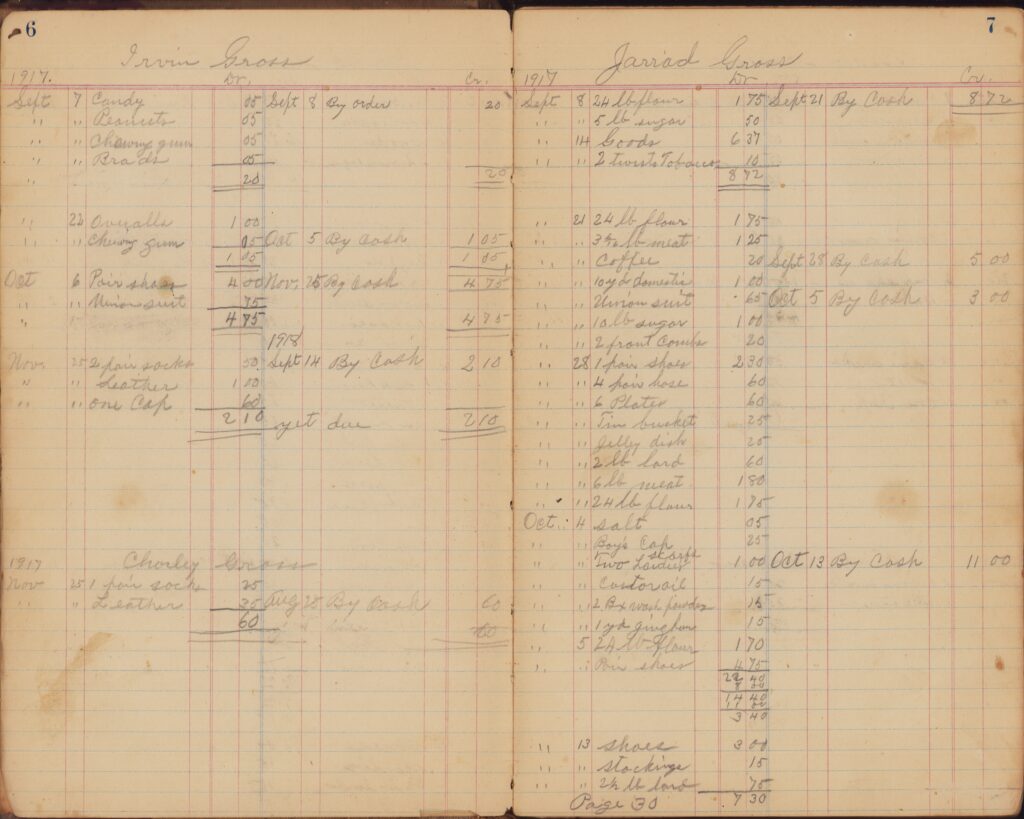 6
Irvin Gross
1917. Dr. Cr.
Sept 7 Candy 05 Sept 8 By order 20
" " Peanuts 05
" " Chewing gum 05
" " Brads 05
" 20 20
" 22 Overalls 1 00
" " Chewing gum 05 Oct 5 By Cash 1 05
1 05 1 05
Oct 6 Pair shoes 4 00 Nov. 25 By Cash 4 75
" " Union suit 75
" 4 75 4 75
1918
Nov. 25 2 pair socks 50 Sept 14 By Cash 2 10
" " Leather 1 00
" " One Cap 60
2 10 yet due 2 10
1917 Charley Gross
Nov 25 1 pair socks 25
" " Leather 35 Aug 25 By Cash 60
60 60
7
Jarrad Gross
1917 Dr Cr.
Sept 8 24 lb flour 1 75 Sept 21 By Cash 8 72
" " 5 lb sugar 50
" 14 Goods 6 37
" " 2 twists Tobacco 10
8 72
" 21 24 lb flour 1 75
" " lb meat 1 25
" " Coffee 20 Sept 28 By Cash 5 00
" " 10 yd domestic 1 00
" " Union suit 65 Oct 5 By Cash 3 00
" " 10 lb sugar 1 00
" " 2 front Combs 20
" 28 1 pair shoes 2 30
" " 4 pair hose 60
" " 6 Plates 60
" " Tin bucket 25
" " Jelley dish 25
" " 2 lb lard 60
" " 6 lb meat 1 80
" " 24 lb flour 1 75
Oct. 4 Salt 05
" " Boy's Cap 25
" " Two Ladies scarfs 1 00 Oct 13 By Cash 11 00
" " Castor oil 15
" " 2 Bx wash powder 15
" " 1 yd gingham 15
" 5 24 lb flour 1 70
" " Pair shoes 4 75
22 40
8 00
14 40
11 00
3 40
" 13 Shoes 3 00
" " Stockings 15
" " 2½ lb lard 75
Page 30 7 30